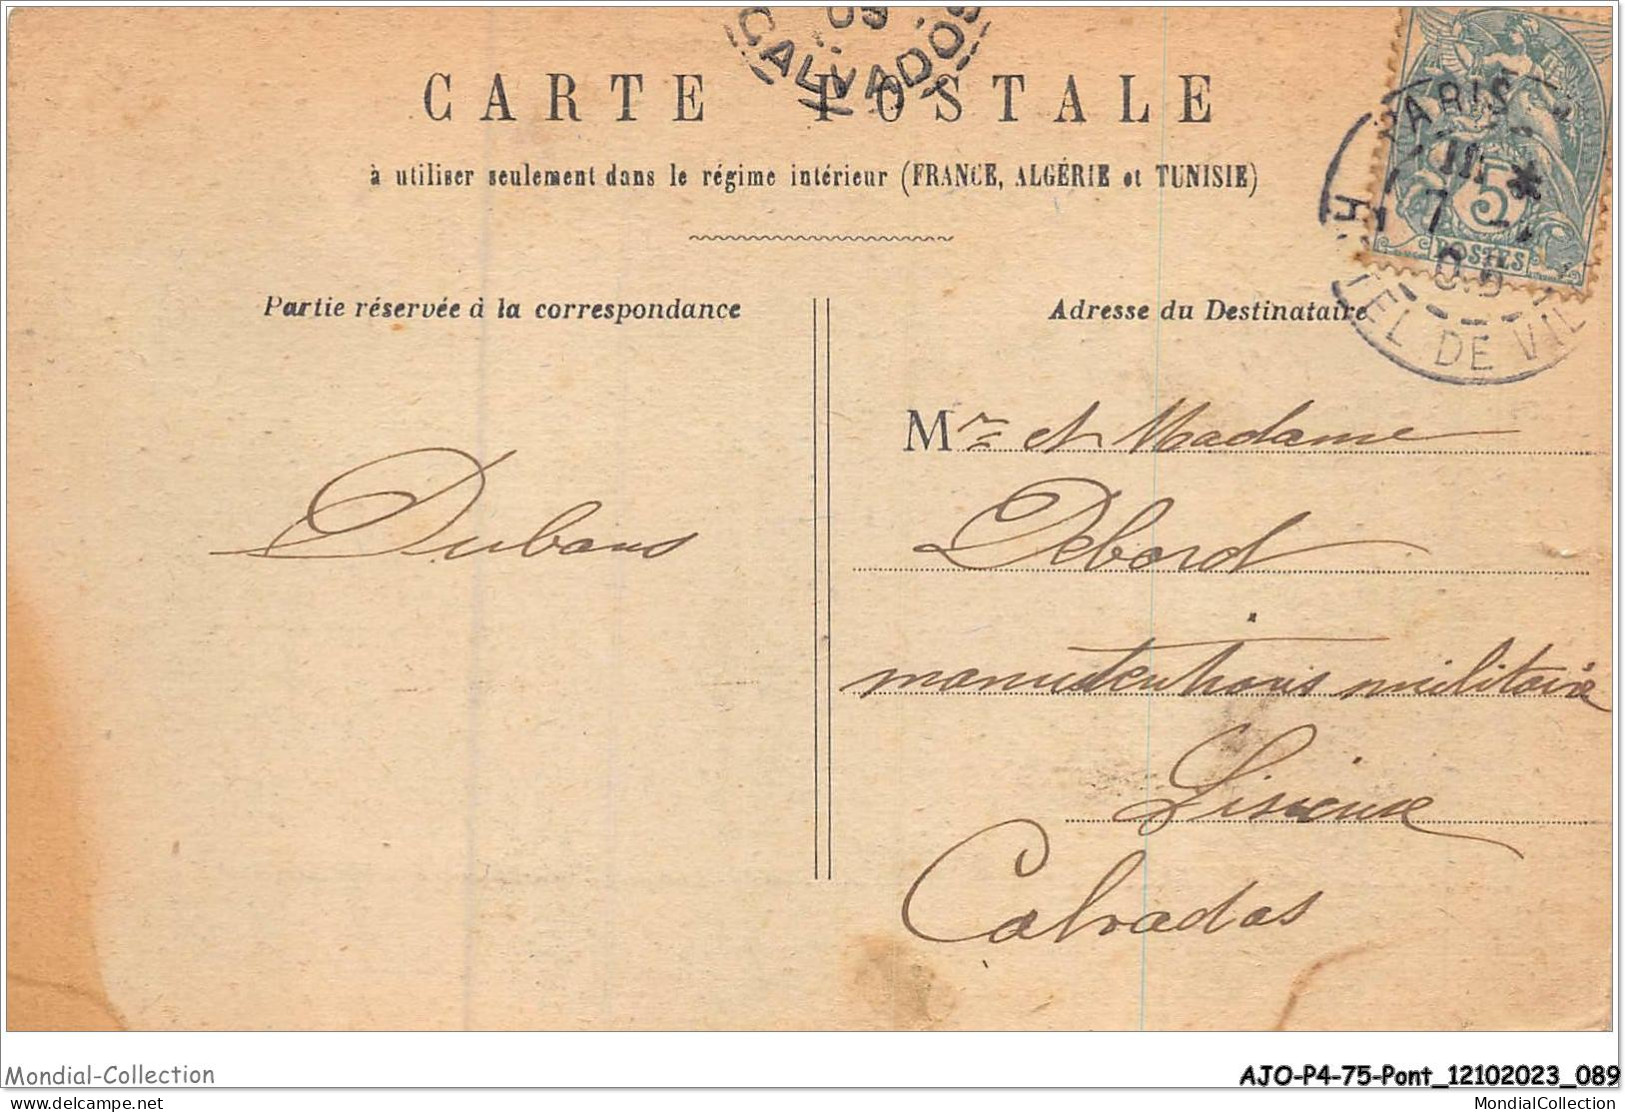 09
CALVADOS
CARTE POSTALE
à utiliser seulement dans le régime intérieur (FRANCE, ALGÉRIE et TUNISIE)
PARIS
5
POSTES
7
HÔTEL DE VIL
Partie réservée à la correspondance
Adresse du Destinataire
Mr et Madame
Debord
manutentions militaire
Lisieux
Calvados
Mondial-Collection
AJO-P4-75-Pont_12102023_089
www.delcampe.net
MondialCollection